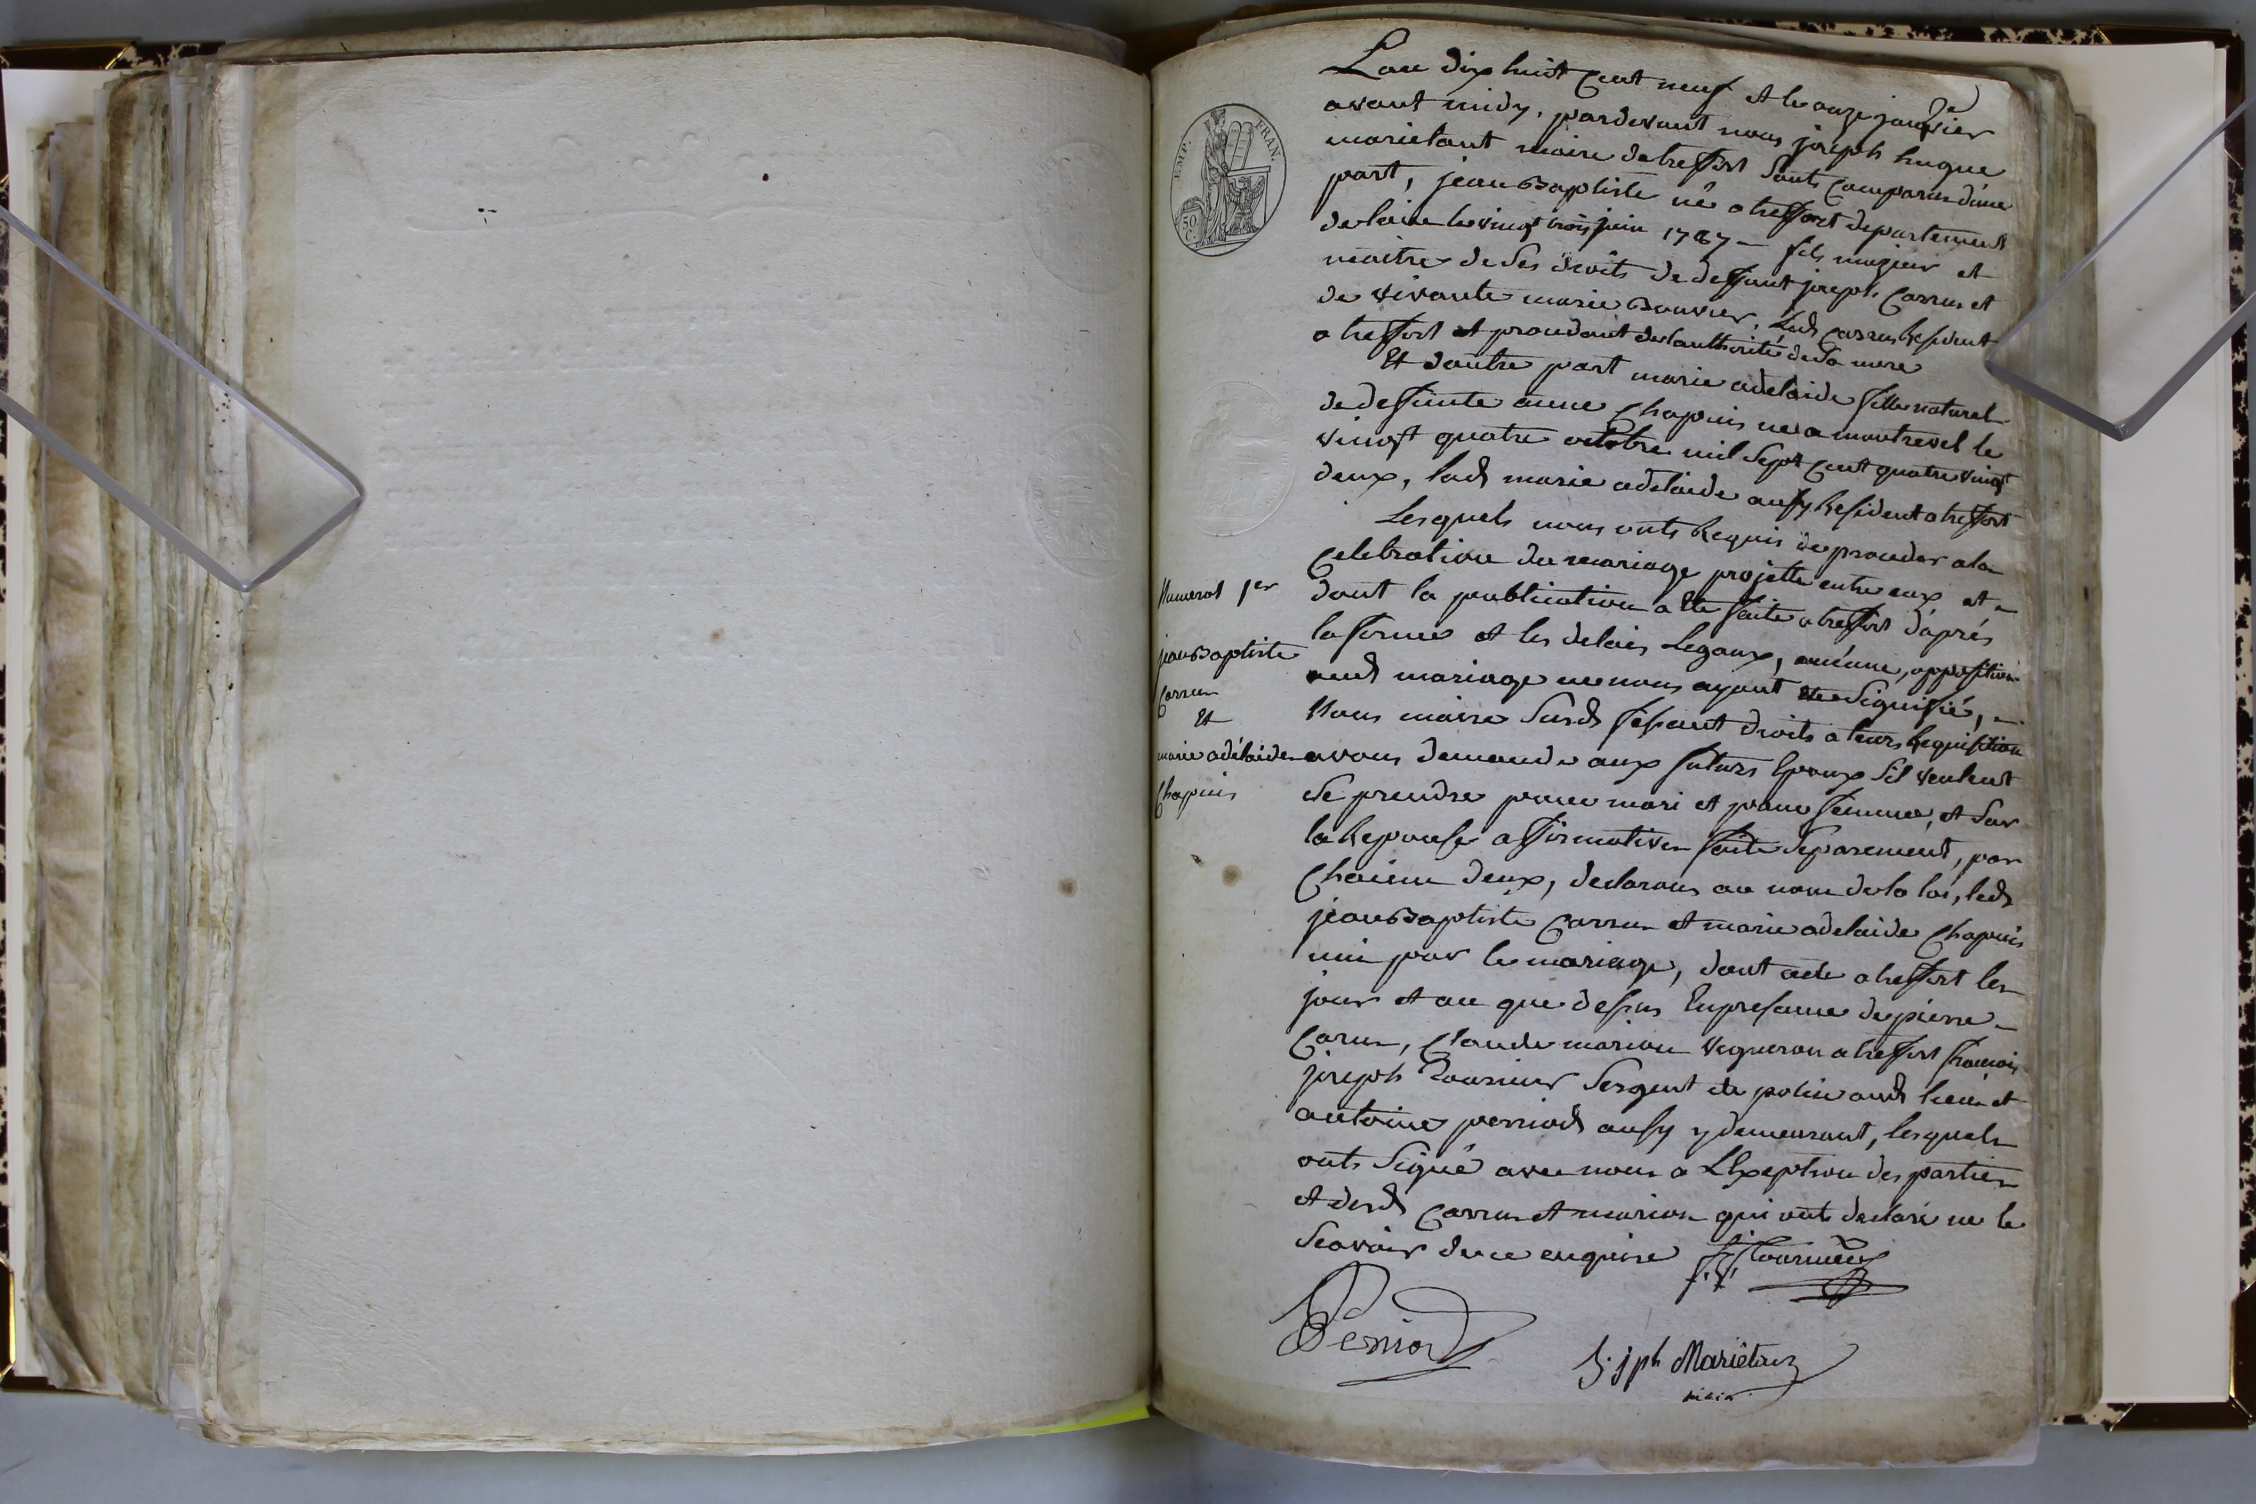 Lan dix huit Cent neuf et le onze janvier
avant midy, pardevant nous joseph hugue
marietant maire de treffort Sonts Comparus d'une
part, jean Baptiste né a treffort departement
de lain le vingt trois juin 1787 fils majeur et
maitre de Ses droits de deffunt joseph Carrus et
de vivante marie Bouvier, Led Carrus Resident
a treffort et procedant de lauthorité de Sa mere
Et dautre part marie adelaide fille naturel
de deffunte anne Chapuis née a montrevel le
vingt quatre octobre mil Sept Cent quatre vingt
deux, lad marie adelaide aussy Resident a treffort
Lesquels nous onts Requis de proceder a la
Celebration du mariage projetté entre eux et
dont la publication a Eté faite a treffort d'aprés
la forme et les delais Legaux, aucune opposition
aud mariage ne nous ayant Eté Signifié,
Nous maire Susd fesant droits a leurs Requisition
avons demandé aux futurs Epoux Sil veulent
Se prendre pour mari et pour femme, et Sur
la Reponse affirmative faite Separement, par
Chacun deux, declarons au nom de la loi, led
jean Baptiste Carrus et marie adelaide Chapuis
uni par le mariage, dont acte a treffort les
jour et an que dessus En presance de pierre
Carrus, Claude marion vigneron a treffort francois
joseph Tournier Sergent de police aud lieu et
antoine perriod aussy y demeurant, lesquels
onts Signé avec nous a L'Exeption des parties
et desd Carrus et marion qui onts declaré ne le
Scavoir de ce enquise
Numerot 1er
jean Baptiste
Carrus
Et
marie adélaide
Chapuis
EMP. FRAN.
50
C.
f. j. Tournier
Perriod
h. jph Mariétan
maire